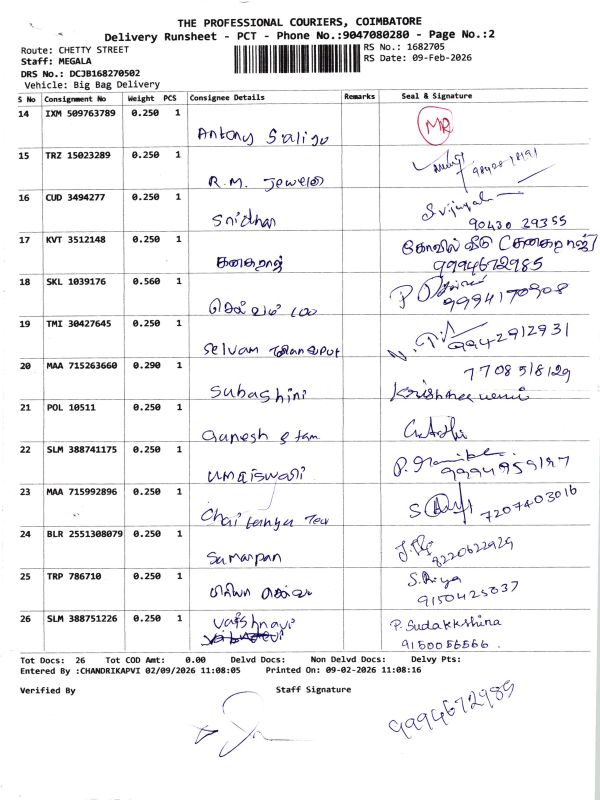 THE PROFESSIONAL COURIERS, COIMBATORE
Delivery Runsheet - PCT - Phone No.:9047080280 - Page No.:2
Route: CHETTY STREET
RS No.: 1682705
Staff: MEGALA
RS Date: 09-Feb-2026
DRS No.: DCJB168270502
Vehicle: Big Bag Delivery
S No Consignment No Weight PCS Consignee Details Remarks Seal & Signature
14 IXM 509763789 0.250 1 MR
Antony
15 TRZ 15023289 0.250 1
R.M. Jewels
16 CUD 3494277 0.250 1
Sridhar 90430 29355
17 KVT 3512148 0.250 1 கோவில் வீடு
கனகராஜ் 9994672985
18 SKL 1039176 0.560 1
9994170908
19 TMI 30427645 0.250 1 9942912931
Selvam
20 MAA 715263660 0.290 1 7708518129
Subashini
21 POL 10511 0.250 1
Ganesh &
22 SLM 388741175 0.250 1
Umaiswari
23 MAA 715992896 0.250 1 7207403016
24 BLR 2551308079 0.250 1
Samarpan 8220622929
25 TRP 786710 0.250 1 S. Priya
26 SLM 388751226 0.250 1 P. Sudakkshina
Vaishnavi
Tot Docs: 26 Tot COD Amt: 0.00 Delvd Docs: Non Delvd Docs: Delvy Pts:
Entered By :CHANDRIKAPVI 02/09/2026 11:08:05 Printed On: 09-02-2026 11:08:16
Verified By Staff Signature
9994672985